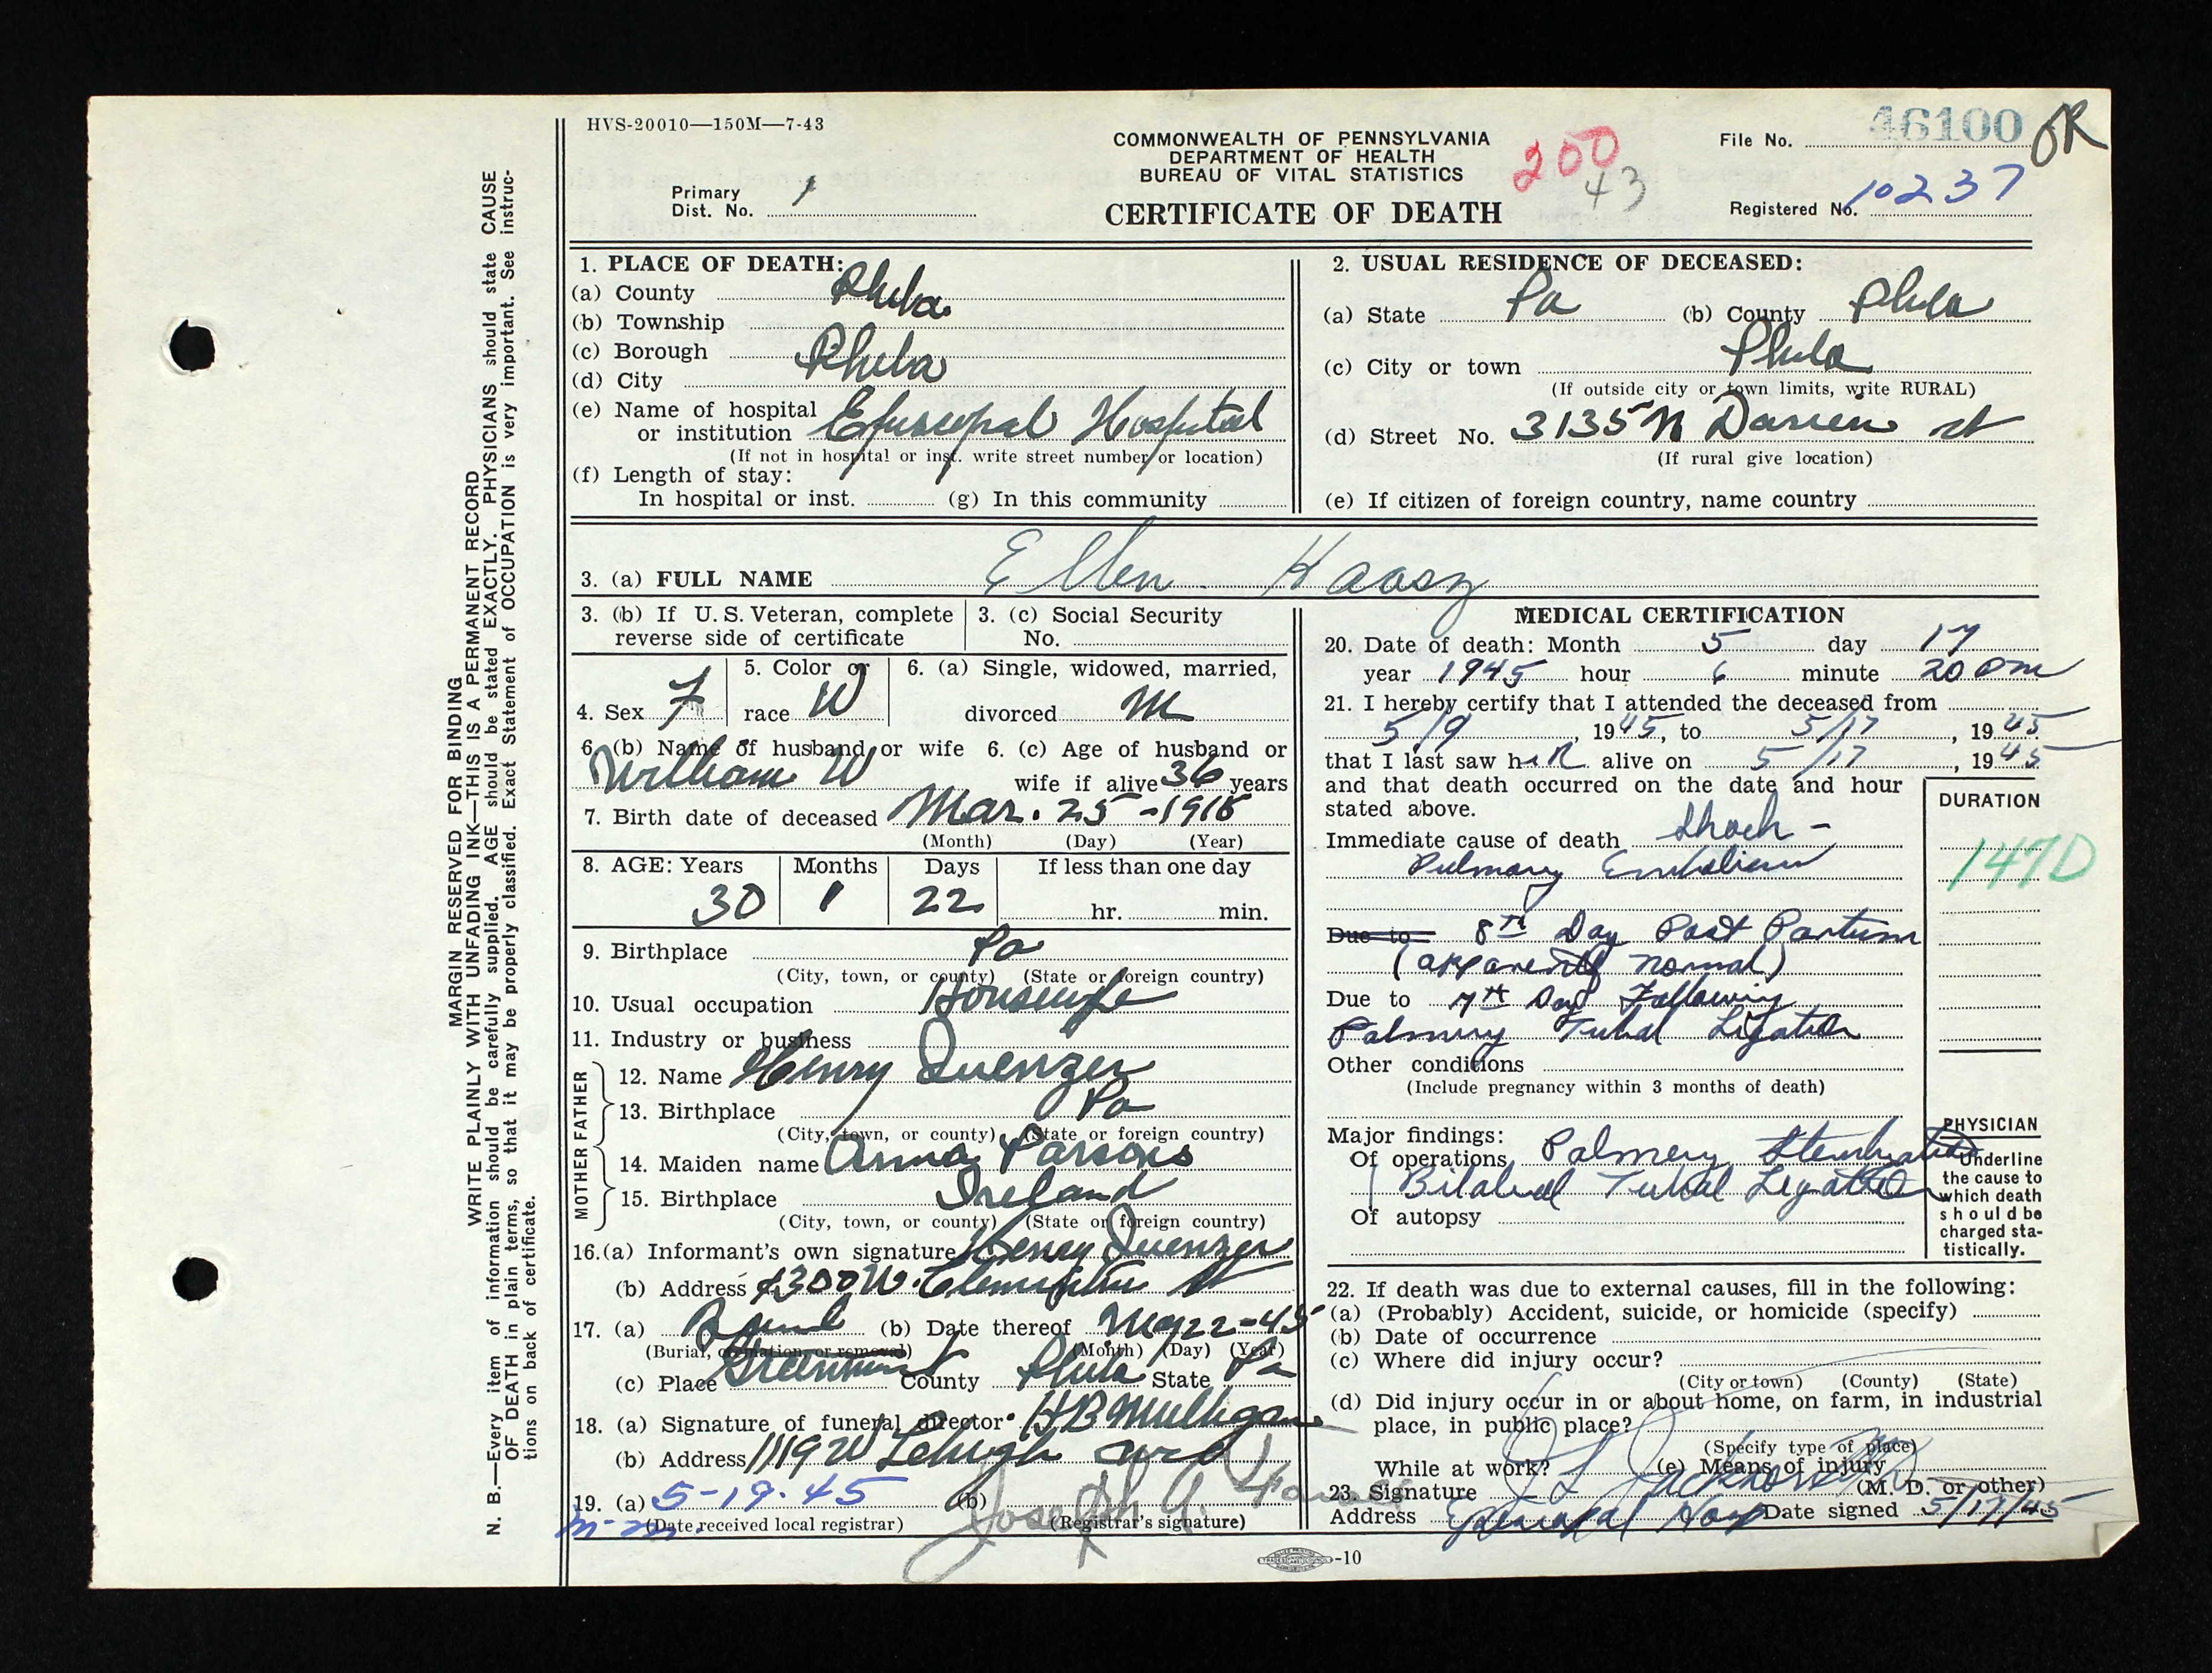 HVS-20010—150M—7-43
COMMONWEALTH OF PENNSYLVANIA
DEPARTMENT OF HEALTH
BUREAU OF VITAL STATISTICS
CERTIFICATE OF DEATH
200
43
File No. 46100 OK
Registered No. 10237
Primary
Dist. No. 1
MARGIN RESERVED FOR BINDING
WRITE PLAINLY WITH UNFADING INK—THIS IS A PERMANENT RECORD
N. B.—Every item of information should be carefully supplied. AGE should be stated EXACTLY. PHYSICIANS should state CAUSE
OF DEATH in plain terms, so that it may be properly classified. Exact Statement of OCCUPATION is very important. See instruc-
tions on back of certificate.
1. PLACE OF DEATH:
(a) County Phila
(b) Township
(c) Borough
(d) City Phila
(e) Name of hospital
or institution Episcopal Hospital
(If not in hospital or inst. write street number or location)
(f) Length of stay:
In hospital or inst. (g) In this community
2. USUAL RESIDENCE OF DECEASED:
(a) State Pa (b) County Phila
(c) City or town Phila
(If outside city or town limits, write RURAL)
(d) Street No. 3135 N Darien st
(If rural give location)
(e) If citizen of foreign country, name country
3. (a) FULL NAME Ellen Haasz
3. (b) If U. S. Veteran, complete
reverse side of certificate
3. (c) Social Security
No.
4. Sex F
5. Color or
race W
6. (a) Single, widowed, married,
divorced M
6. (b) Name of husband or wife 6. (c) Age of husband or
William W wife if alive 36 years
7. Birth date of deceased Mar. 25 - 1915
(Month) (Day) (Year)
8. AGE: Years Months Days If less than one day
30 1 22 hr. min.
9. Birthplace Pa
(City, town, or county) (State or foreign country)
10. Usual occupation Housewife
11. Industry or business
FATHER
12. Name Henry Quenzer
13. Birthplace Pa
(City, town, or county) (State or foreign country)
MOTHER
14. Maiden name Anna Parsons
15. Birthplace Ireland
(City, town, or county) (State or foreign country)
16.(a) Informant's own signature Henry Quenzer
(b) Address 1300 W. Clementine St
17. (a) Burial (b) Date thereof May 22-45
(Burial, cremation, or removal) (Month) (Day) (Year)
(c) Place Greenmount County Phila State Pa
18. (a) Signature of funeral director HB Mulligan
(b) Address 1119 W Lehigh ave
19. (a) 5-19-45 (b) Joseph
(Date received local registrar) (Registrar's signature)
MEDICAL CERTIFICATION
20. Date of death: Month 5 day 17
year 1945 hour 6 minute 20 am
21. I hereby certify that I attended the deceased from
5/9, 1945, to 5/17, 1945
that I last saw her alive on 5/17, 1945
and that death occurred on the date and hour
stated above.
DURATION
147D
Immediate cause of death Shock -
Pulmonary Embolism
Due to 8th Day Post Partum
(apparently normal)
Due to 7th Day Following
Palmery Tubal Ligation
Other conditions
(Include pregnancy within 3 months of death)
Major findings:
Of operations Palmery Sterilization
Bilateral Tubal Ligation
Of autopsy
PHYSICIAN
Underline
the cause to
which death
should be
charged sta-
tistically.
22. If death was due to external causes, fill in the following:
(a) (Probably) Accident, suicide, or homicide (specify)
(b) Date of occurrence
(c) Where did injury occur?
(City or town) (County) (State)
(d) Did injury occur in or about home, on farm, in industrial
place, in public place?
(Specify type of place)
While at work? (e) Means of injury
23. Signature (M. D. or other)
Address Episcopal Hosp Date signed 5/17/45
-10